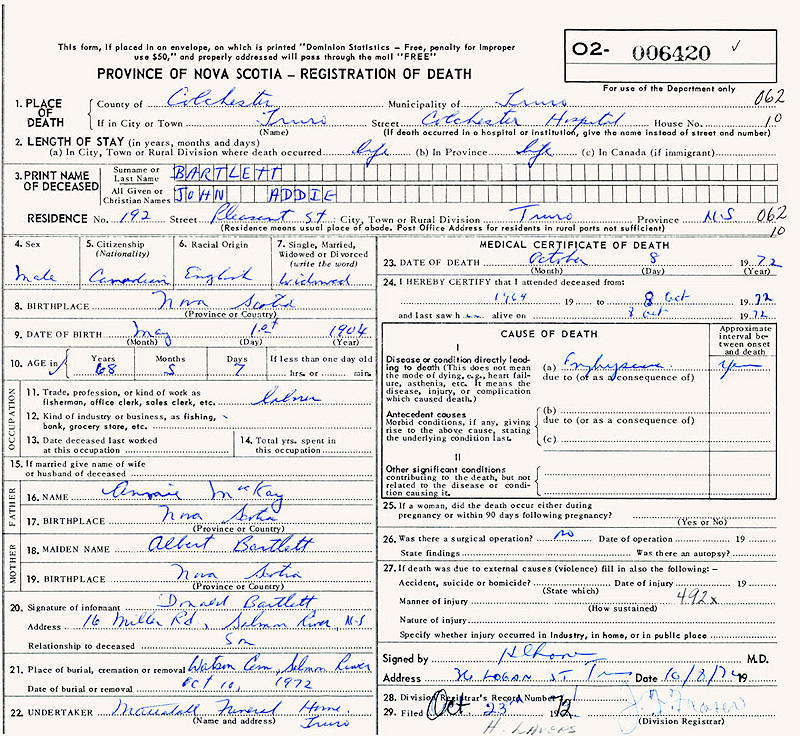 This form, if placed in an envelope, on which is printed "Dominion Statistics - Free, penalty for improper
use $50," and properly addressed will pass through the mail "FREE"
PROVINCE OF NOVA SCOTIA - REGISTRATION OF DEATH
O2- 006420 ✓
For use of the Department only
1. PLACE OF DEATH { County of Colchester Municipality of Truro 062
If in City or Town Truro Street Colchester Hospital House No. 10
(Name) (If death occurred in a hospital or institution, give the name instead of street and number)
2. LENGTH OF STAY (in years, months and days)
(a) In City, Town or Rural Division where death occurred life (b) In Province life (c) In Canada (if immigrant)
3. PRINT NAME OF DECEASED
Surname or Last Name BARTLETT
All Given or Christian Names JOHN ADDIE
RESIDENCE No. 192 Street Pleasant St City, Town or Rural Division Truro Province N.S 062
(Residence means usual place of abode. Post Office Address for residents in rural ports not sufficient) 10
4. Sex
Male
5. Citizenship
(Nationality)
Canadian
6. Racial Origin
English
7. Single, Married,
Widowed or Divorced
(write the word)
Widowed
8. BIRTHPLACE Nova Scotia
(Province or Country)
9. DATE OF BIRTH May 1st 1904
(Month) (Day) (Year)
10. AGE in Years Months Days If less than one day old
68 5 7 hrs. or min.
OCCUPATION
11. Trade, profession, or kind of work as
fisherman, office clerk, sales clerk, etc.
12. Kind of industry or business, as fishing,
bank, grocery store, etc.
13. Date deceased last worked
at this occupation
14. Total yrs. spent in
this occupation
15. If married give name of wife
or husband of deceased
FATHER
16. NAME Annie McKay
17. BIRTHPLACE Nova Scotia
(Province or Country)
MOTHER
18. MAIDEN NAME Albert Bartlett
19. BIRTHPLACE Nova Scotia
(Registration of Country)
20. Signature of informant Donald Bartlett
Address 16 Miller Rd, Salmon River, N.S
Relationship to deceased Son
21. Place of burial, cremation or removal Watson Cem, Salmon River
Date of burial or removal Oct 10, 1972
22. UNDERTAKER Mattatall Funeral Home.
(Name and address) Truro
MEDICAL CERTIFICATE OF DEATH
23. DATE OF DEATH October 8 1972
(Month) (Day) (Year)
24. I HEREBY CERTIFY that I attended deceased from:
19 to 8 Oct 1972
and last saw h alive on 8 Oct 1972
CAUSE OF DEATH
Approximate
interval be-
tween onset
and death
I
Disease or condition directly lead-
ing to death (This does not mean
the mode of dying, e.g., heart fail-
ure, asthenia, etc. It means the
disease, injury, or complication
which caused death.)
(a) Emphysema
due to (or as a consequence of)
Antecedent causes
Morbid conditions, if any, giving
rise to the above cause, stating
the underlying condition last.
(b)
due to (or as a consequence of)
(c)
II
Other significant conditions
contributing to the death, but not
related to the disease or condi-
tion causing it.
25. If a woman, did the death occur either during
pregnancy or within 90 days following pregnancy?
(Yes or No)
26. Was there a surgical operation? no Date of operation 19
State findings Was there an autopsy?
27. If death was due to external causes (violence) fill in also the following: -
Accident, suicide or homicide? Date of injury 19
(State which)
Manner of injury 492x
(How sustained)
Nature of injury
Specify whether injury occurred in Industry, in home, or in public place
Signed by M.D.
Address LOGAN ST Date 19
28. Division Registrar's Record Number
29. Filed Oct 23rd 1972 J. F. Fraser
H. LAVERS (Division Registrar)